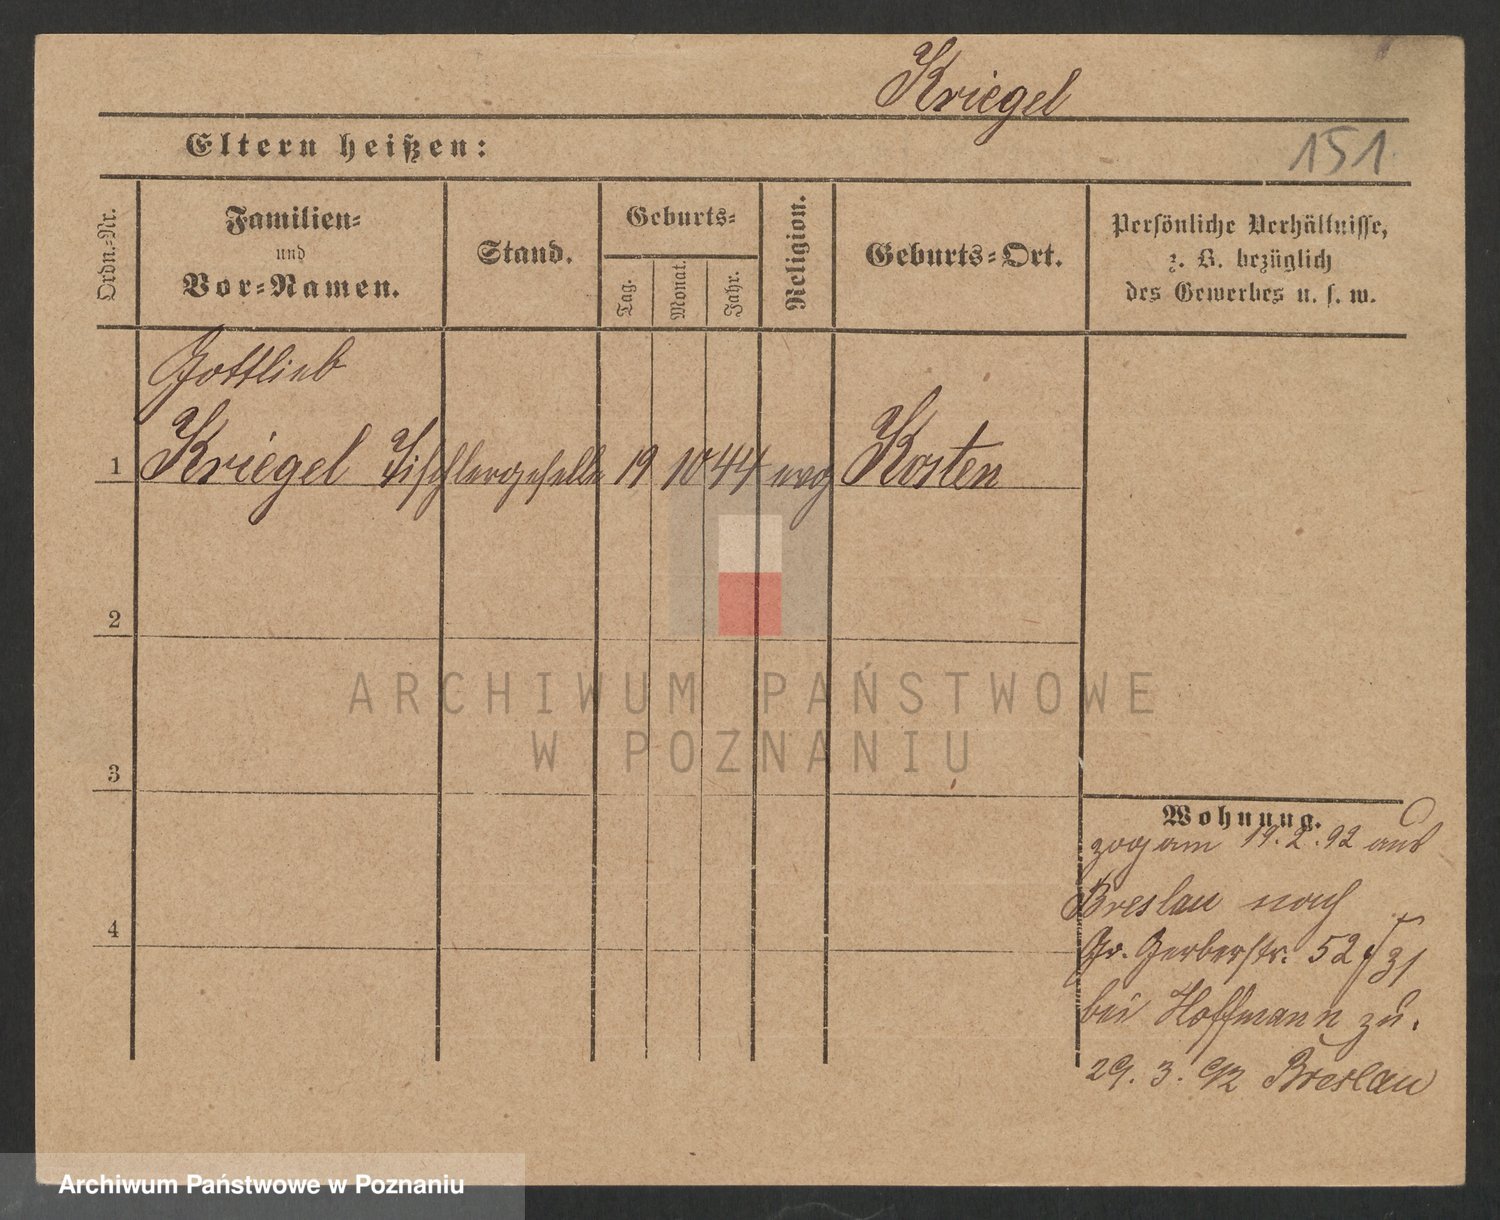 Kriegel
Eltern heißen:
151
Ordn.-Nr.
Familien-
und
Vor-Namen.
Stand.
Geburts-
Tag.
Monat.
Jahr.
Religion.
Geburts-Ort.
Persönliche Verhältnisse,
z. B. bezüglich
des Gewerbes u. s. w.
Gottlieb
1 Kriegel Tischlergeselle 19 10 44 evg Kosten
2
3
4
ARCHIWUM PAŃSTWOWE
W POZNANIU
Wohnung.
zog am 19. 2. 92 aus
Breslau nach
Gr. Gerberstr. 52
bei Hoffmann zu.
29. 3. 92 Breslau
Archiwum Państwowe w Poznaniu